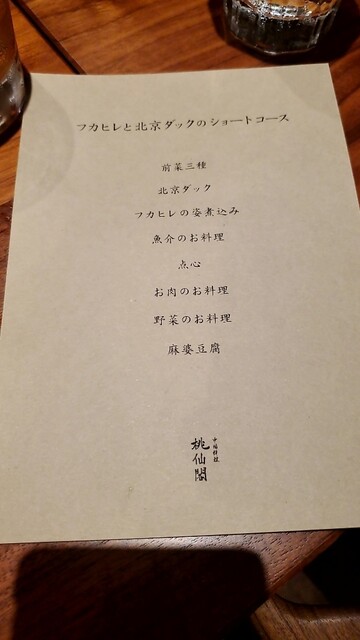 フカヒレと北京ダックのショートコース
前菜三種
北京ダック
フカヒレの姿煮込み
魚介のお料理
点心
お肉のお料理
野菜のお料理
麻婆豆腐
中国料理
桃仙閣